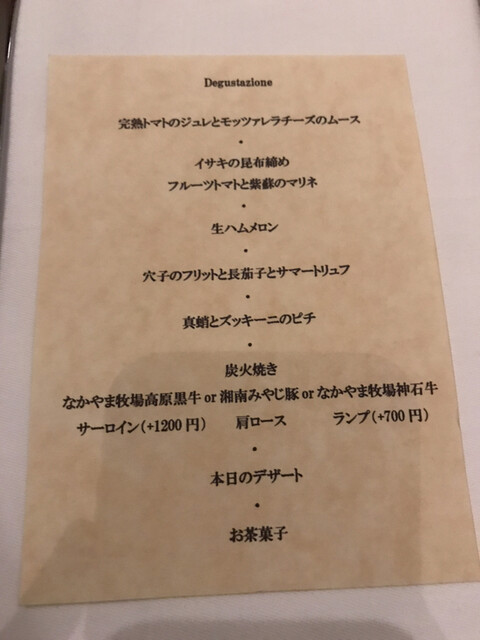 Degustazione
完熟トマトのジュレとモッツァレラチーズのムース
・
イサキの昆布締め
フルーツトマトと紫蘇のマリネ
・
生ハムメロン
・
穴子のフリットと長茄子とサマートリュフ
・
真蛸とズッキーニのピチ
・
炭火焼き
なかやま牧場高原黒牛 or 湘南みやじ豚 or なかやま牧場神石牛
サーロイン(+1200 円) 肩ロース ランプ(+700 円)
・
本日のデザート
・
お茶菓子